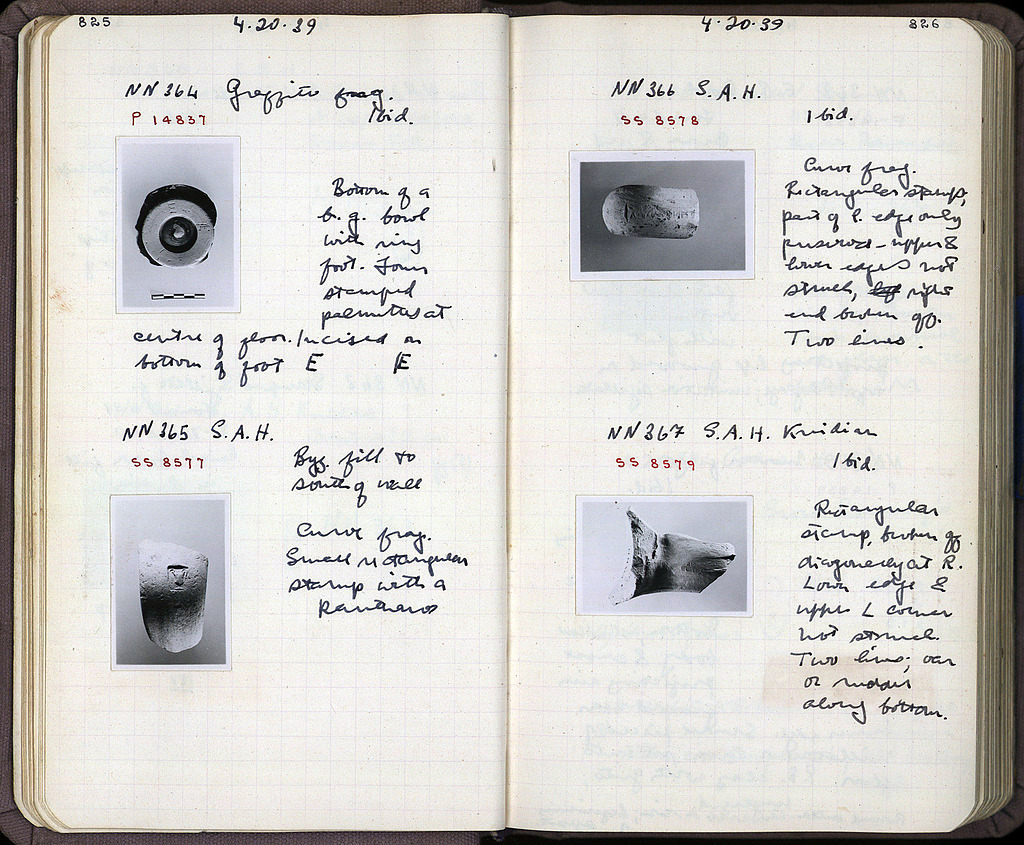 825
4·20·39
NN 364 Graffito frag.
Ibid.
P 14837
Bottom of a
b. g. bowl
with ring
foot. Four
stamped
palmettes at
centre of floor. Incised on
bottom of foot E E
NN 365 S.A.H.
SS 8577
Byz. fill to
south of wall
Curve frag.
Small rectangular
stamp with a
kantharos
4·20·39
826
NN 366 S.A.H.
SS 8578
Ibid.
Curve frag.
Rectangular stamp,
part of l. edge only
preserved - upper &
lower edges not
struck, right
end broken off.
Two lines.
NN 367 S.A.H. Knidian
SS 8579
Ibid.
Rectangular
stamp, broken off
diagonally at R.
Lower edge &
upper L corner
not struck.
Two lines; oar
or rudder
along bottom.